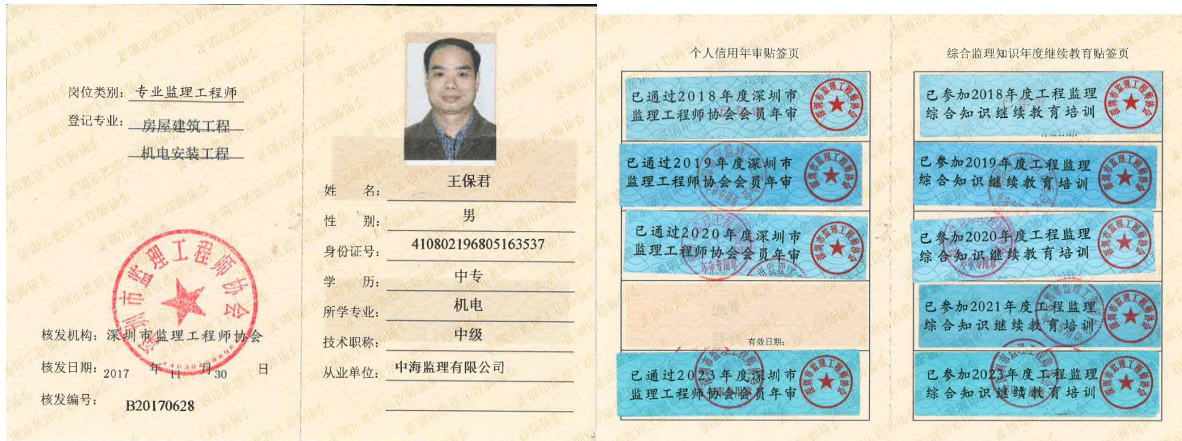 岗位类别：专业监理工程师
登记专业：房屋建筑工程
机电安装工程
深圳市监理工程师协会
核发机构：深圳市监理工程师协会
核发日期：2017年11月30日
核发编号：B20170628
姓名：王保君
性别：男
身份证号：410802196805163537
学历：中专
所学专业：机电
技术职称：中级
从业单位：中海监理有限公司
个人信用年审贴签页
已通过2018年度深圳市
监理工程师协会会员年审
已通过2019年度深圳市
监理工程师协会会员年审
已通过2020年度深圳市
监理工程师协会会员年审
有效日期：
已通过2023年度深圳市
监理工程师协会会员年审
综合监理知识年度继续教育贴签页
已参加2018年度工程监理
综合知识继续教育培训
有效日期：
已参加2019年度工程监理
综合知识继续教育培训
已参加2020年度工程监理
综合知识继续教育培训
已参加2021年度工程监理
综合知识继续教育培训
已参加2023年度工程监理
综合知识继续教育培训